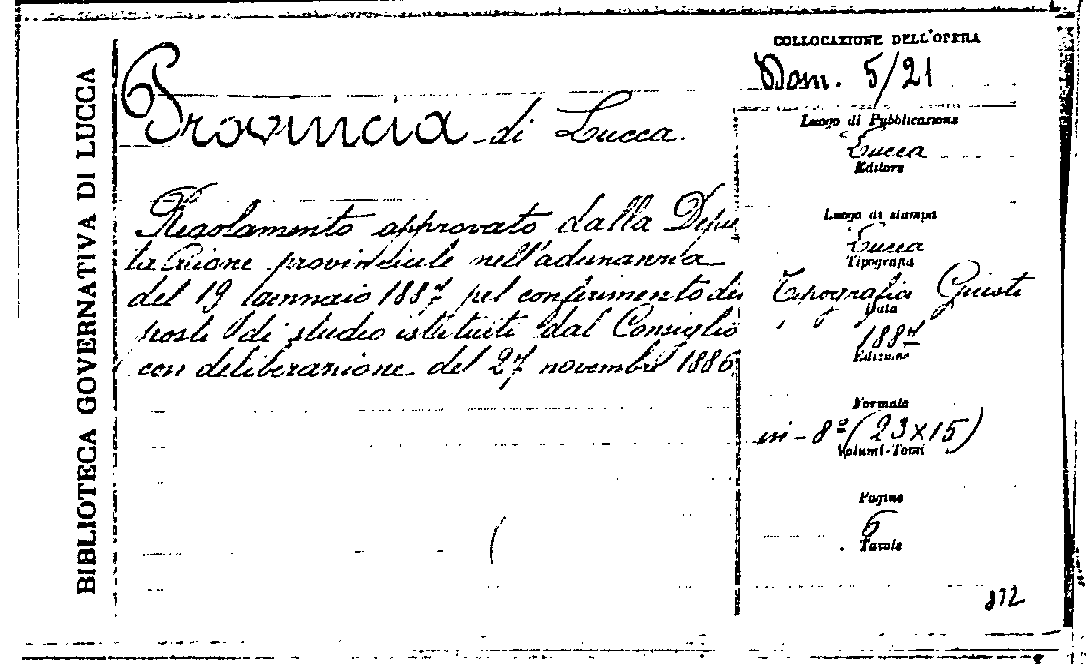 BIBLIOTECA GOVERNATIVA DI LUCCA
Provincia di Lucca.
Regolamento approvato dalla Depu
tazione provinciale nell'adunanza
del 19 Gennaio 1887 pel conferimento di
posti di studio istituiti dal Consiglio
con deliberazione del 27 novembre 1886
COLLOCAZIONE DELL'OPERA
Dom. 5/21
Luogo di Pubblicazione
Lucca
Editore
Luogo di stampa
Lucca
Tipografia
Tipografia Giusti
Data
1887
Edizione
Formato
in-8º (23x15)
Volumi-Tomi
Pagine
6
Tavole